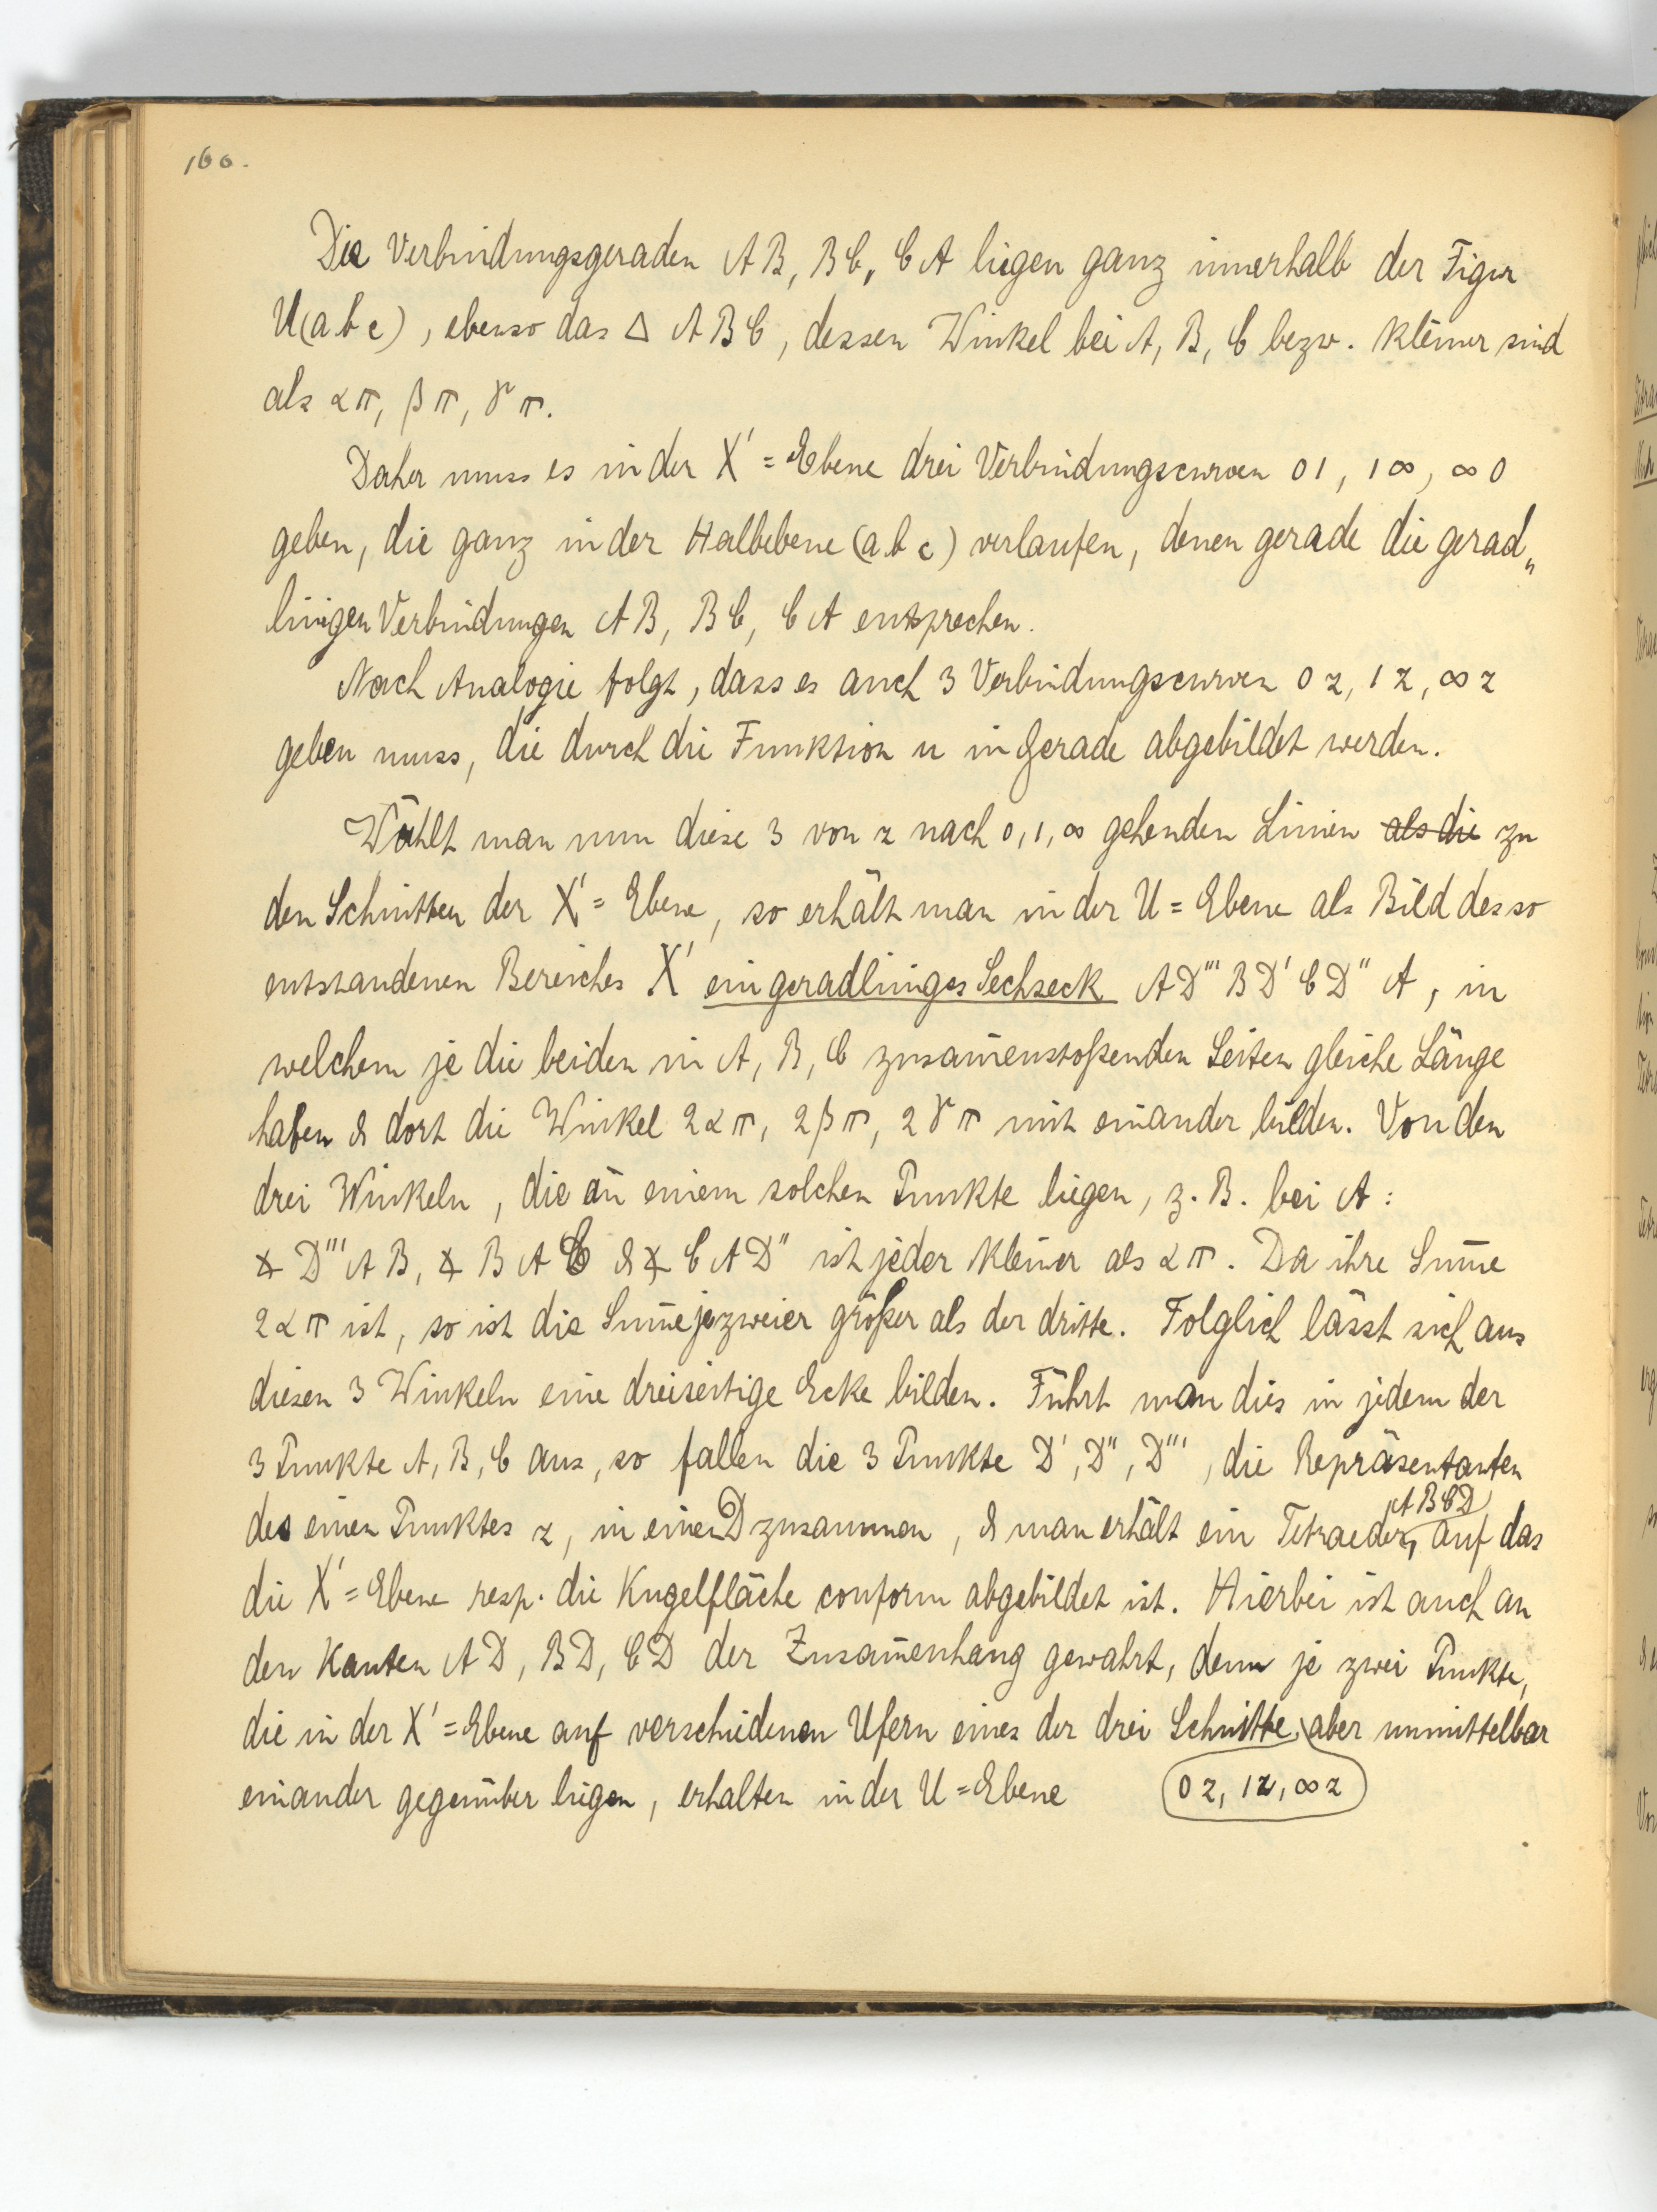 160.
Die Verbindungsgeraden AB, BC, CA liegen ganz innerhalb der Figur
U(abc), ebenso das △ ABC, dessen Winkel bei A, B, C bezw. kleiner sind
als απ, βπ, γπ.
Daher muss es in der X' = Ebene drei Verbindungscurven 01, 1∞, ∞0
geben, die ganz in der Halbebene (abc) verlaufen, denen gerade die gerad„
linigen Verbindungen AB, BC, CA entsprechen.
Nach Analogie folgt, dass es auch 3 Verbindungscurven 0z, 1z, ∞z
geben muss, die durch die Funktion u in Gerade abgebildet werden.
Wählt man nun diese 3 von z nach 0, 1, ∞ gehenden Linien als die zu
den Schnitten der X' = Ebene, so erhält man in der U = Ebene als Bild des so
entstandenen Bereiches X' ein geradliniges Sechseck AD'''BD'CD''A, in
welchem je die beiden in A, B, C zusam̅enstoßenden Seiten gleiche Länge
haben & dort die Winkel 2απ, 2βπ, 2γπ mit einander bilden. Von den
drei Winkeln, die an einem solchen Punkte liegen, z. B. bei A:
∢ D'''AB, ∢ BAC & ∢ CAD'' ist jeder kleiner als απ. Da ihre Sum̅e
2απ ist, so ist die Sum̅e je zweier größer als der dritte. Folglich lässt sich aus
diesen 3 Winkeln eine dreiseitige Ecke bilden. Führt man dies in jedem der
3 Punkte A, B, C aus, so fallen die 3 Punkte D', D'', D''', die Repräsentanten
des einen Punktes z, in einen D zusammen, & man erhält ein Tetraeder, ABCD auf das
die X' = Ebene resp. die Kugelfläche conform abgebildet ist. Hierbei ist auch an
den Kanten AD, BD, CD der Zusam̅enhang gewahrt, denn je zwei Punkte,
die in der X' = Ebene auf verschiedenen Ufern eines der drei Schnitte, aber unmittelbar
einander gegenüber liegen, erhalten in der U = Ebene 0z, 1z, ∞z